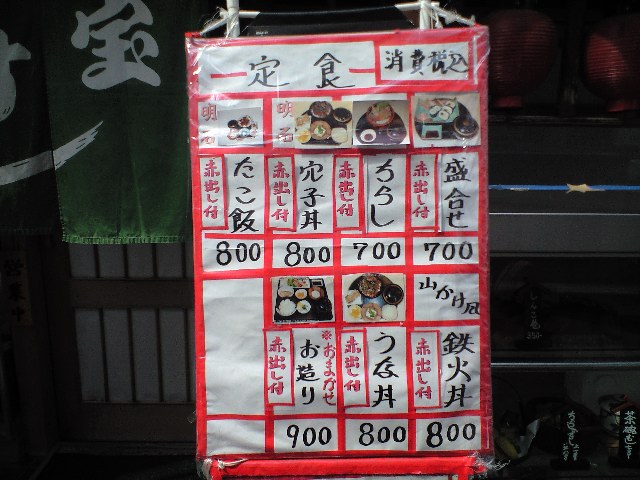 宝
定食
消費税込
盛合せ
赤出し付
700
ちらし
赤出し付
700
明石
穴子丼
赤出し付
800
明石
たこ飯
赤出し付
800
山かけ風
鉄火丼
赤出し付
800
うな丼
赤出し付
800
※おまかせ
お造り
赤出し付
900
営業中